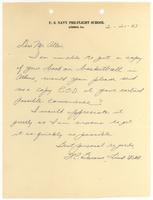 U. S. NAVY PRE-FLIGHT SCHOOL
ATHENS, GA.
2-21-43
Dear Mr. Allen,
I am unable to get a copy
of your book on basketball in
Athens, would you please send
me a copy C.O.D. at your earliest
possible convenience?
I would surely appreciate it
greatly as I am anxious to get
it as quickly as possible.
Best personal regards,